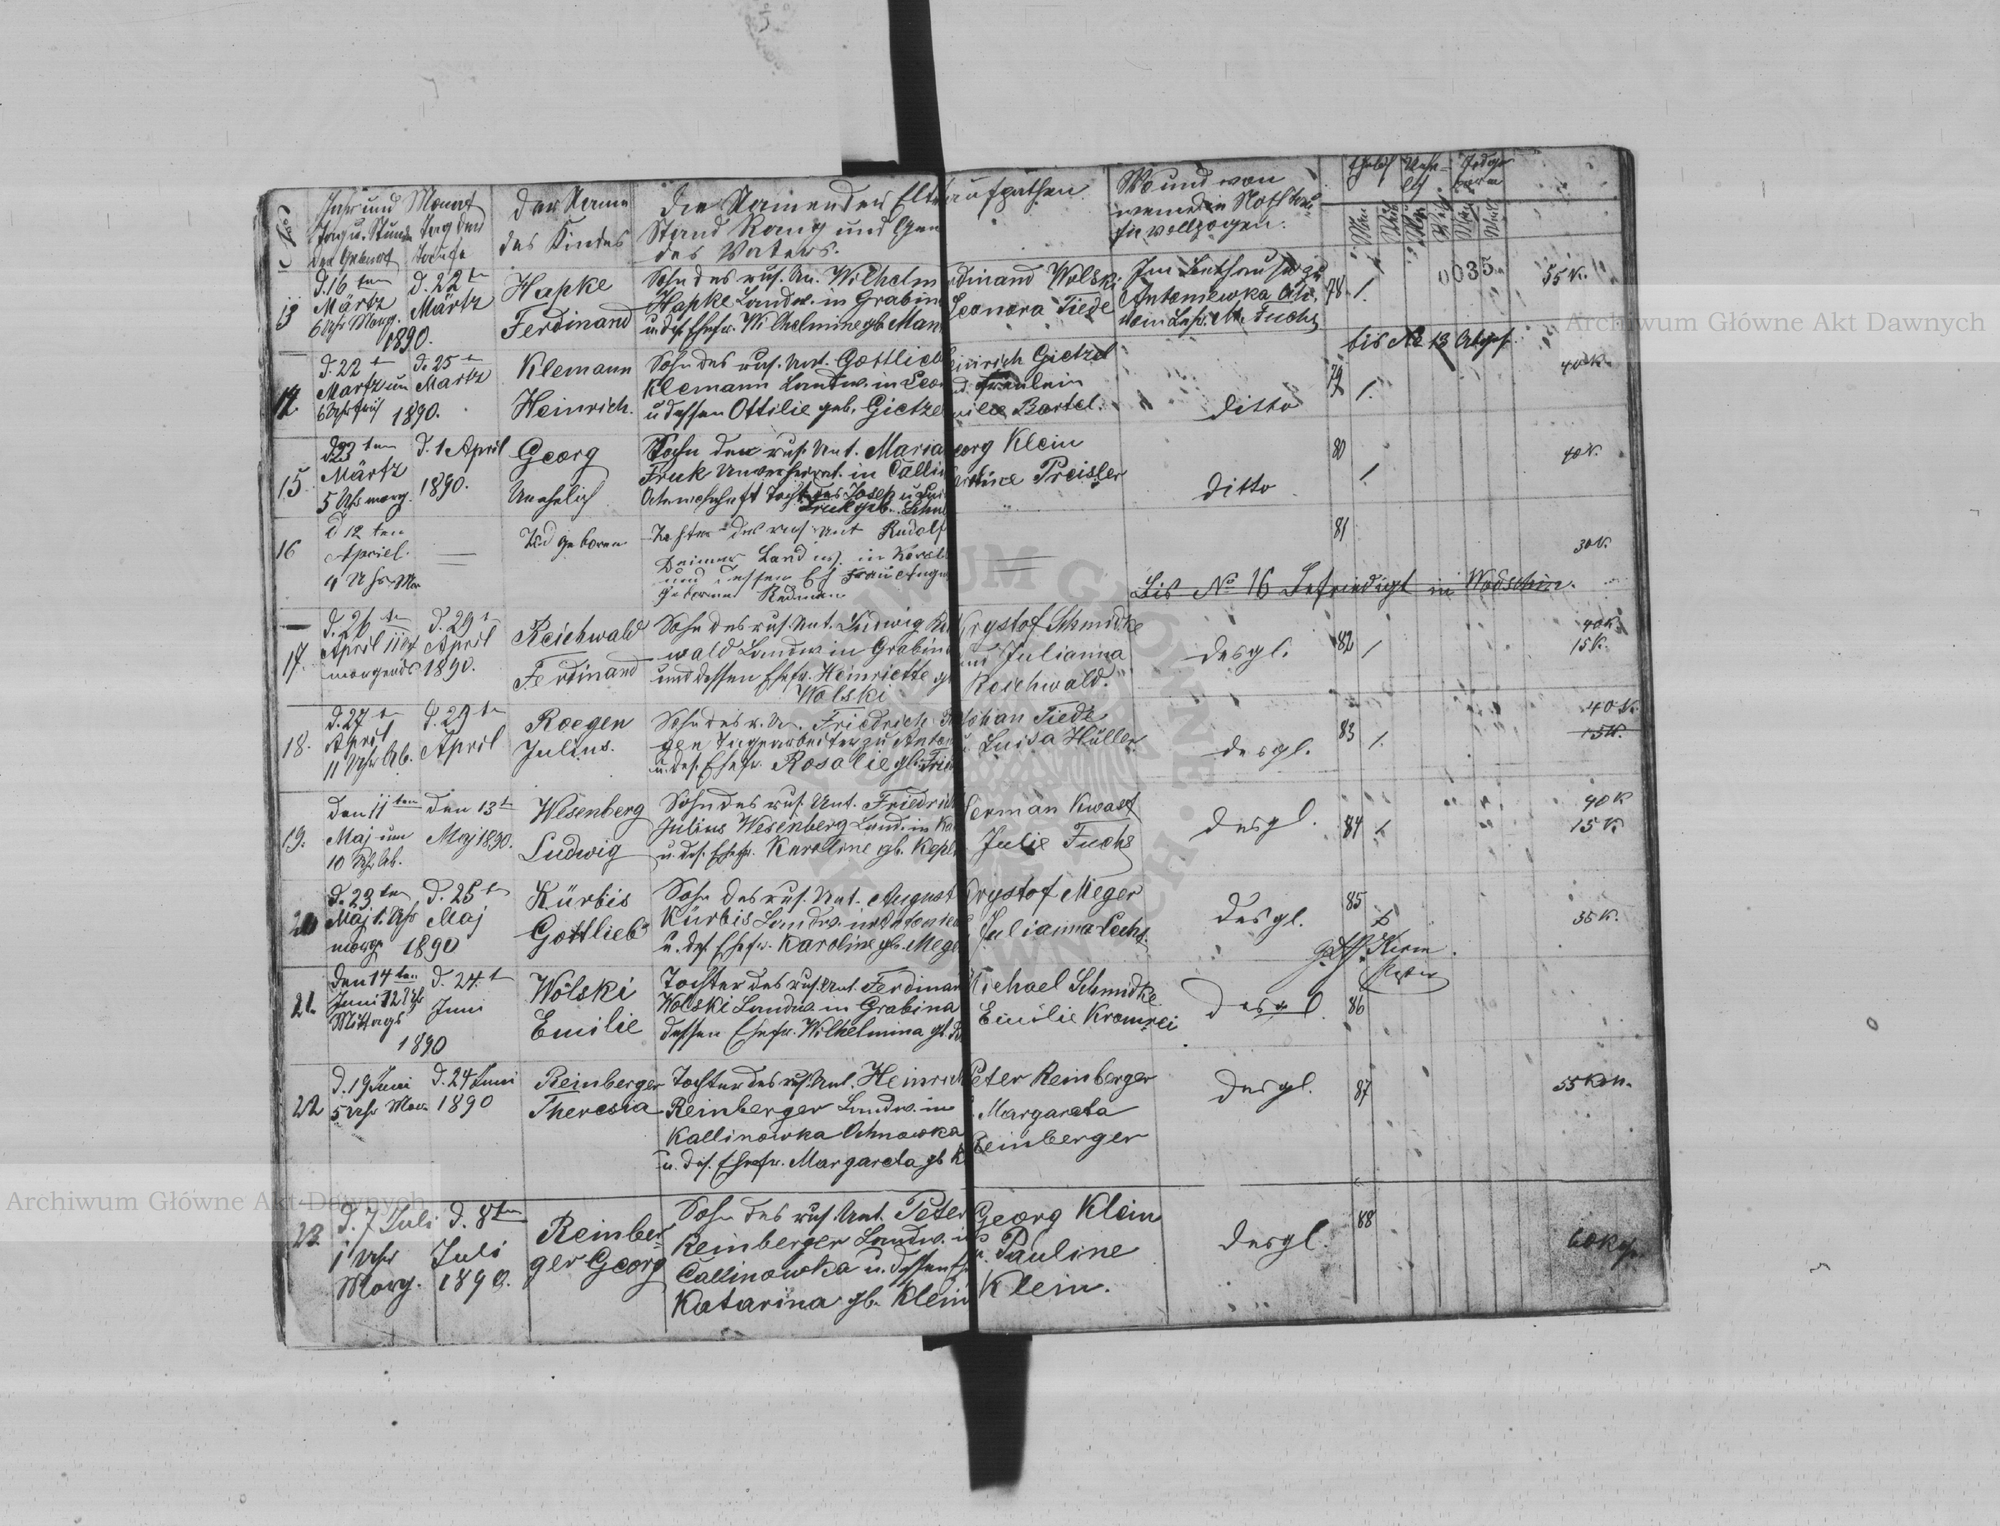 Jahr und Monat
Tag u. Stunde Tag der
der Geburt Taufe
Der Name
des Kindes
Die Namen der Elt
Stand Rang und
des Vaters.
aufpathen
Wo und von
wem die Nothtau
fe vollzogen.
13
d. 16 ten
Märtz
6 Uhr Morg.
d. 22 ten
Märtz
1890.
Hapke
Ferdinand
Sohn des rus. Un. Wilhelm
Hapke Landw. in Grabin
u. des Ehefr. Wilhelmine gb. Man
dinand Wolski
Leonora Tiede
Im Bethause zu
Antoniewka
vom Leh. Fuchs
78 1.
0035
55 K.
bis No 13 Abges.
14
d. 22 ten
Martz um
6 Uhr früh
d. 25 ten
Martz
1890.
Klemann
Heinrich.
Sohn des rus. Unt. Gottlieb
Klemann Landw. in Leon
u dessen Ottilie geb. Gietzel
einrich Gietzel
d. Freulein
Bartel.
ditto
79 1.
40 K.
15.
d 23 ten
Märtz
5 Uhr morg.
d. 1 April
1890.
Georg
Unehelich
Sohn der rus. Unt. Maria
Fruk Unverheirat. in Callin
Tocht. des Josep u
Fruk geb.
eorg Klein
Preisler
ditto
80 1
40 K.
16
d 12 ten
Apriel.
4 Uhr Mor
—
Tod geboren
Tochter des rus Unt Rudolf
Deimer Landw. in
und dessen Eh frau Augu
geborene Redman
—
81
30 K.
Bis No 16 Befriedigt in Wodschin.
17.
d. 26 ten
April 11 Uhr
morgends
d. 29 t
April
1890.
Reichwald
Ferdinand
Sohn des rus. Unt. Ludwig Re
wald Landw. in Grabin
und dessen Ehefr. Henriette g
Wolski
Krystof Schmidke
und Julianna
Reichwald.
desgl.
82 1
40 K.
15 K.
18.
d. 27 ten
April
11 Uhr Ab.
d. 29 ten
April
Roegen
Julius.
Sohn des r. Un. Friedrich R
gen Tagearbeiter zu Anton
u. des. Ehefr. Rosalie gb. Frie
Johan Tiede
u. Luisa Hüller
desgl.
83 1.
40 K.
15 K.
19.
den 11 ten
Maj um
10 Uhr Ab.
den 13 t
Maj 1890.
Wesenberg
Ludwig
Sohn des rus. Unt. Friedrich
Julius Wesenberg Land. in Ka
u. des. Ehefr. Karoline gb. Kepl
Herman Kwast
Julie Fuchs
desgl.
84 1
40 K
15 K.
20
d. 23 ten
Maj 1. Uhr
morge
d. 25 t
Maj
1890
Kürbis
Gottlieb
Sohn des rus. Unt. August
Kürbis Landw. in
u. des Ehefr. Karoline gb. Mege
Krystof Meger
Julianna Pechs.
desgl.
85
35 K.
21.
den 14 ten
Juni 12 Uhr
Mittags
d. 24. t
Juni
1890
Wolski
Emilie
Tochter des rus. Unt. Ferdinan
Wolski Landw. in Grabina
dessen Ehefr. Wilhelmina gb.
Michael Schmidke
Emilie Kromrei
desgl.
86
22
d. 19 Juni
5 Uhr Mor.
d. 24 Juni
1890
Reinberger
Theresia
Tochter des rus. Unt. Heinrich
Reinberger Landw. in
Kallinowka Ochnowka
u. des. Ehefr. Margareta gb K
Peter Reinberger
Margareta
Reinberger
desgl.
87
55 Kop.
23
d. 7 Juli
1 Uhr
Morg.
d. 8 ten
Juli
1890.
Reinber
ger Georg
Sohn des rus. Unt. Peter
Reinberger Landw. in
Callinowka u. dessen Ehe
Katarina gb. Klein
Georg Klein
u. Pauline
Klein.
desgl.
88
60 Kop.
Archiwum Główne Akt Dawnych
Archiwum Główne Akt Dawnych